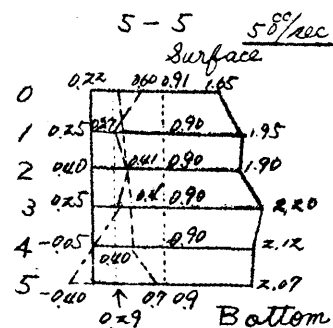 5 - 5
50 cc/sec
Surface
0.22 0.60 0.91 1.65
0
1 0.25 0.37 0.90 1.95
2 0.40 0.41 0.90 1.90
3 0.25 0.90 2.20
4 -0.05 0.90 2.12
0.40
5 -0.40 0.7 0.9 2.07
0.29
Bottom